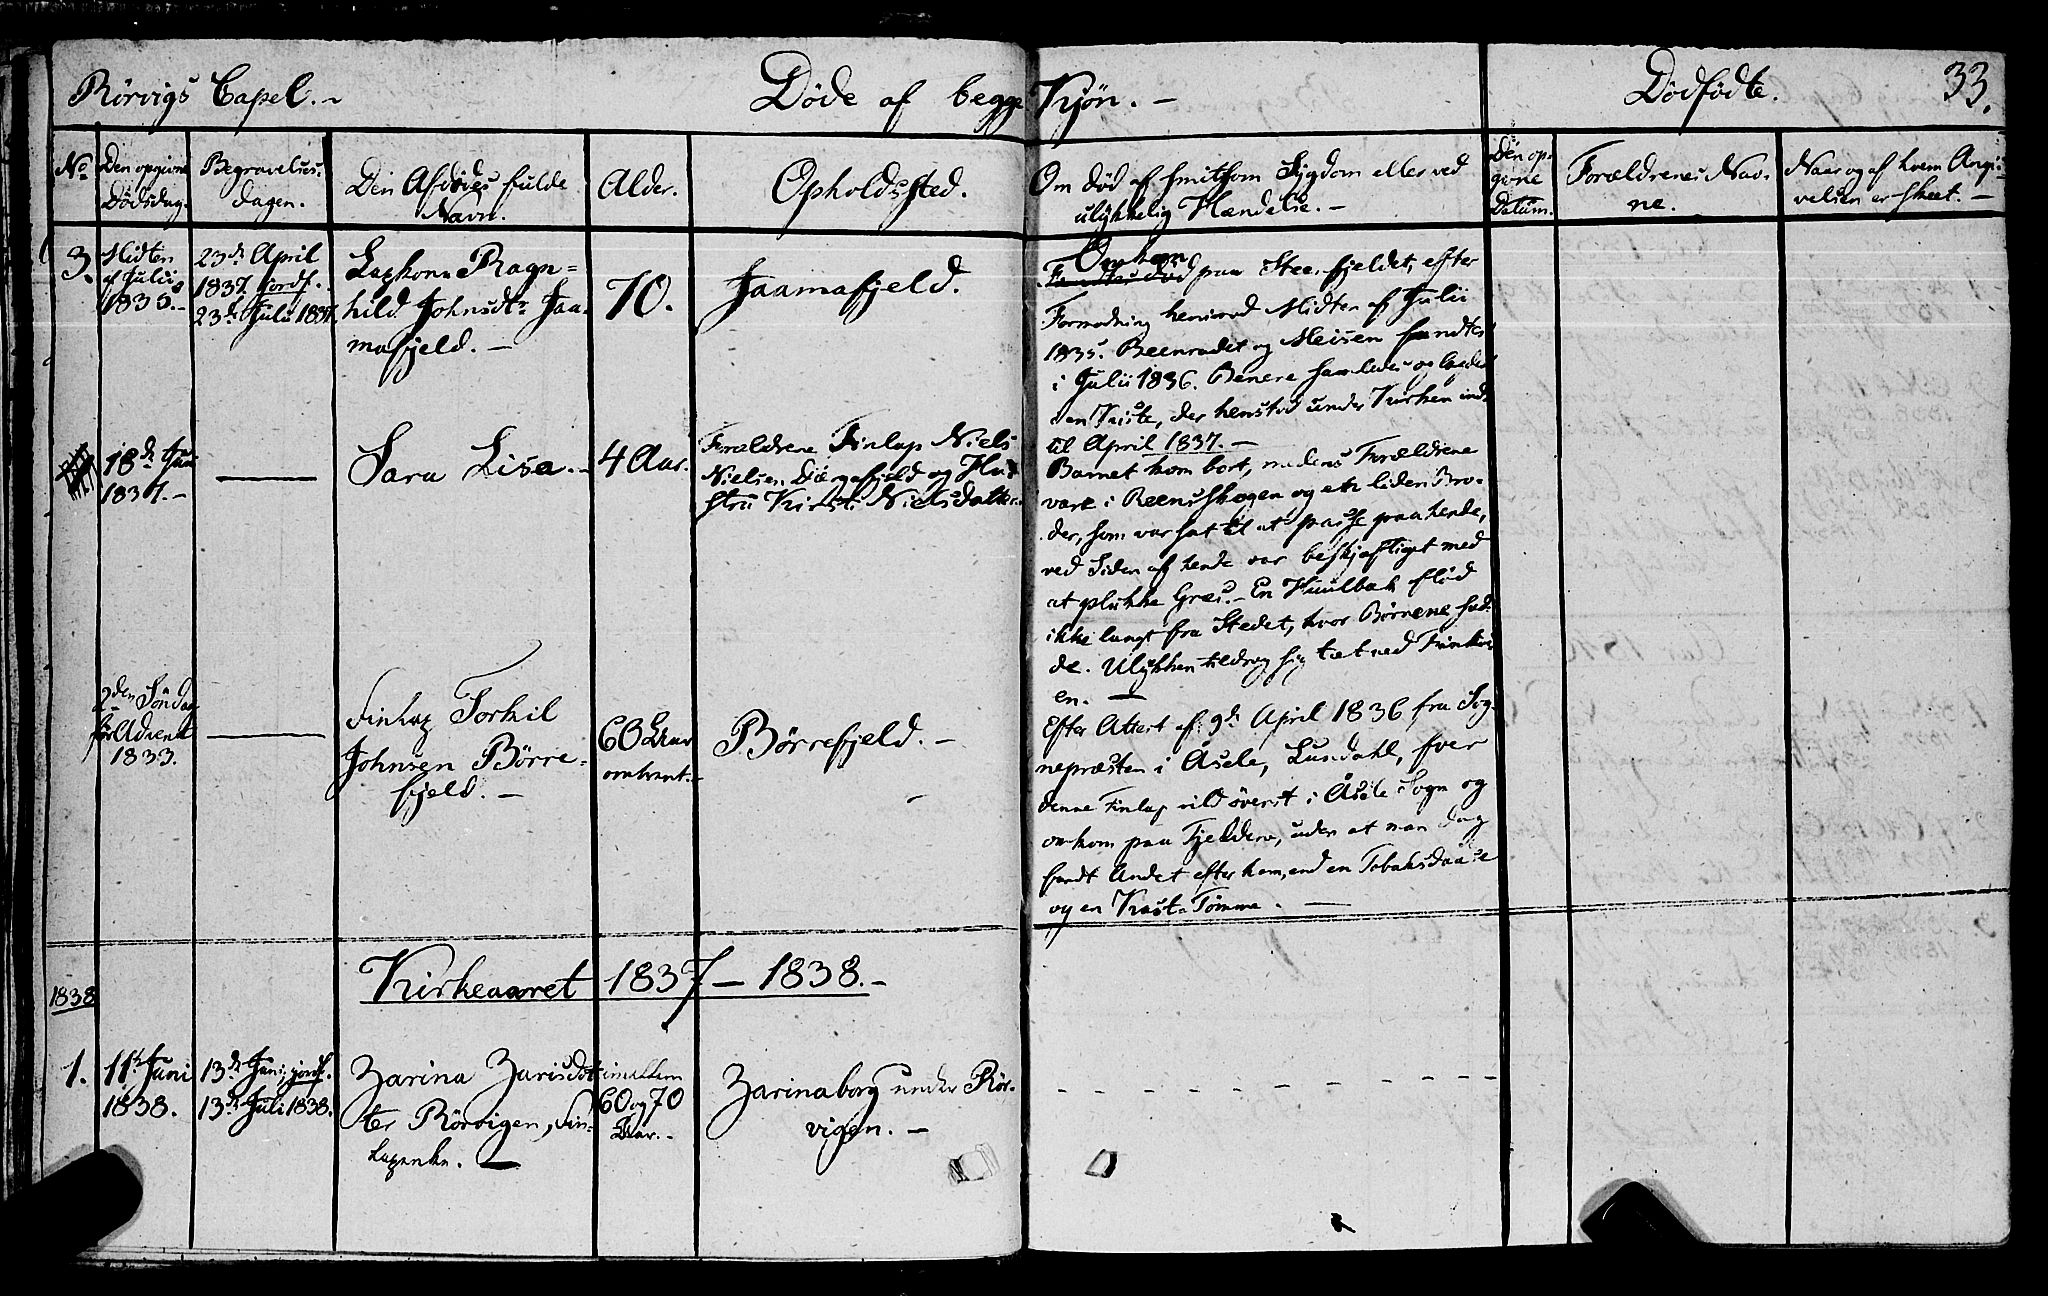 Rörvigs Capel. Døde af begge Kjön. Dødfødte. 33.
No
Den opgivne
Dödsdag.
Begravelses-
dagen.
Den Afdødes fulde
Navn.
Alder.
Opholdssted.
Om død af smitsom Sygdom eller ved
ulykkelig Hændelse.
Den op-
givne
Datum.
Forældrenes Nav-
ne.
Naar og af hvem Angi-
velsen er skeet.
3.
Midten
af Julii
1835.
23de April
1837. jordf.
23de Juli 1837.
Lapkone Ragn=
hild Johnsdtr Jaa-
mafjeld.
70.
Jaamafjeld.
Omkom
paa Steensfjeldet, efter
Formodning henimod Midten af Julii
1835. Beenradet og Meisen fandtes
i Julii 1836. Benene samledes og lagdes
i en Kiste, der henstod under Kirken ind-
til April 1837.
18de Juni
1837.
Sara Lisa.
4 Aar.
Forældrene Finlap Niels
Nielsen og Hu-
stru Kirsti Nielsdatter
Barnet kom bort, medens Forældrene
vare i Reenskogen og en liden Bro-
der, som var sat til at passe paa hende,
ved Siden af hende var beskjæftiget med
at plukke Græs. En Kuulbæk flød
ikke langt fra Stedet, hvor Børnene sad-
de. Ulykken tildrog sig tæt ved
en.
2den Söndag
för Advent
1833.
Finlap Torkil
Johnsen Börre-
fjeld.
60 Aar
omtrent.
Börrefjeld.
Efter Attest af 9de April 1836 fra Sog-
nepræsten i Åsele, Lundahl, foer
denne Finlap vild överst i Åsele Sogn og
omkom paa Fjeldene, uden at man dog
fandt Andet efter ham, end en Tobaksdaase
og en Tömme.
Kirkeaaret 1837 - 1838.
1838
1.
11te Juni
1838.
13de Juni, jordf.
13de Juli 1838.
Zarina Zarisdat-
ter Rörvigen, Fin-
lapenke.
imellem
60 og 70
Aar.
Zarinaborg under Rör-
vigen.